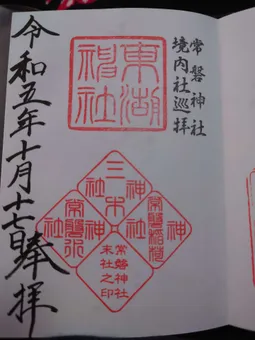 常磐神社
境内社巡拝
東湖
神社
三木
神社
常磐稲荷
神社
常磐神社
末社之印
令和五年十月十七日奉拝